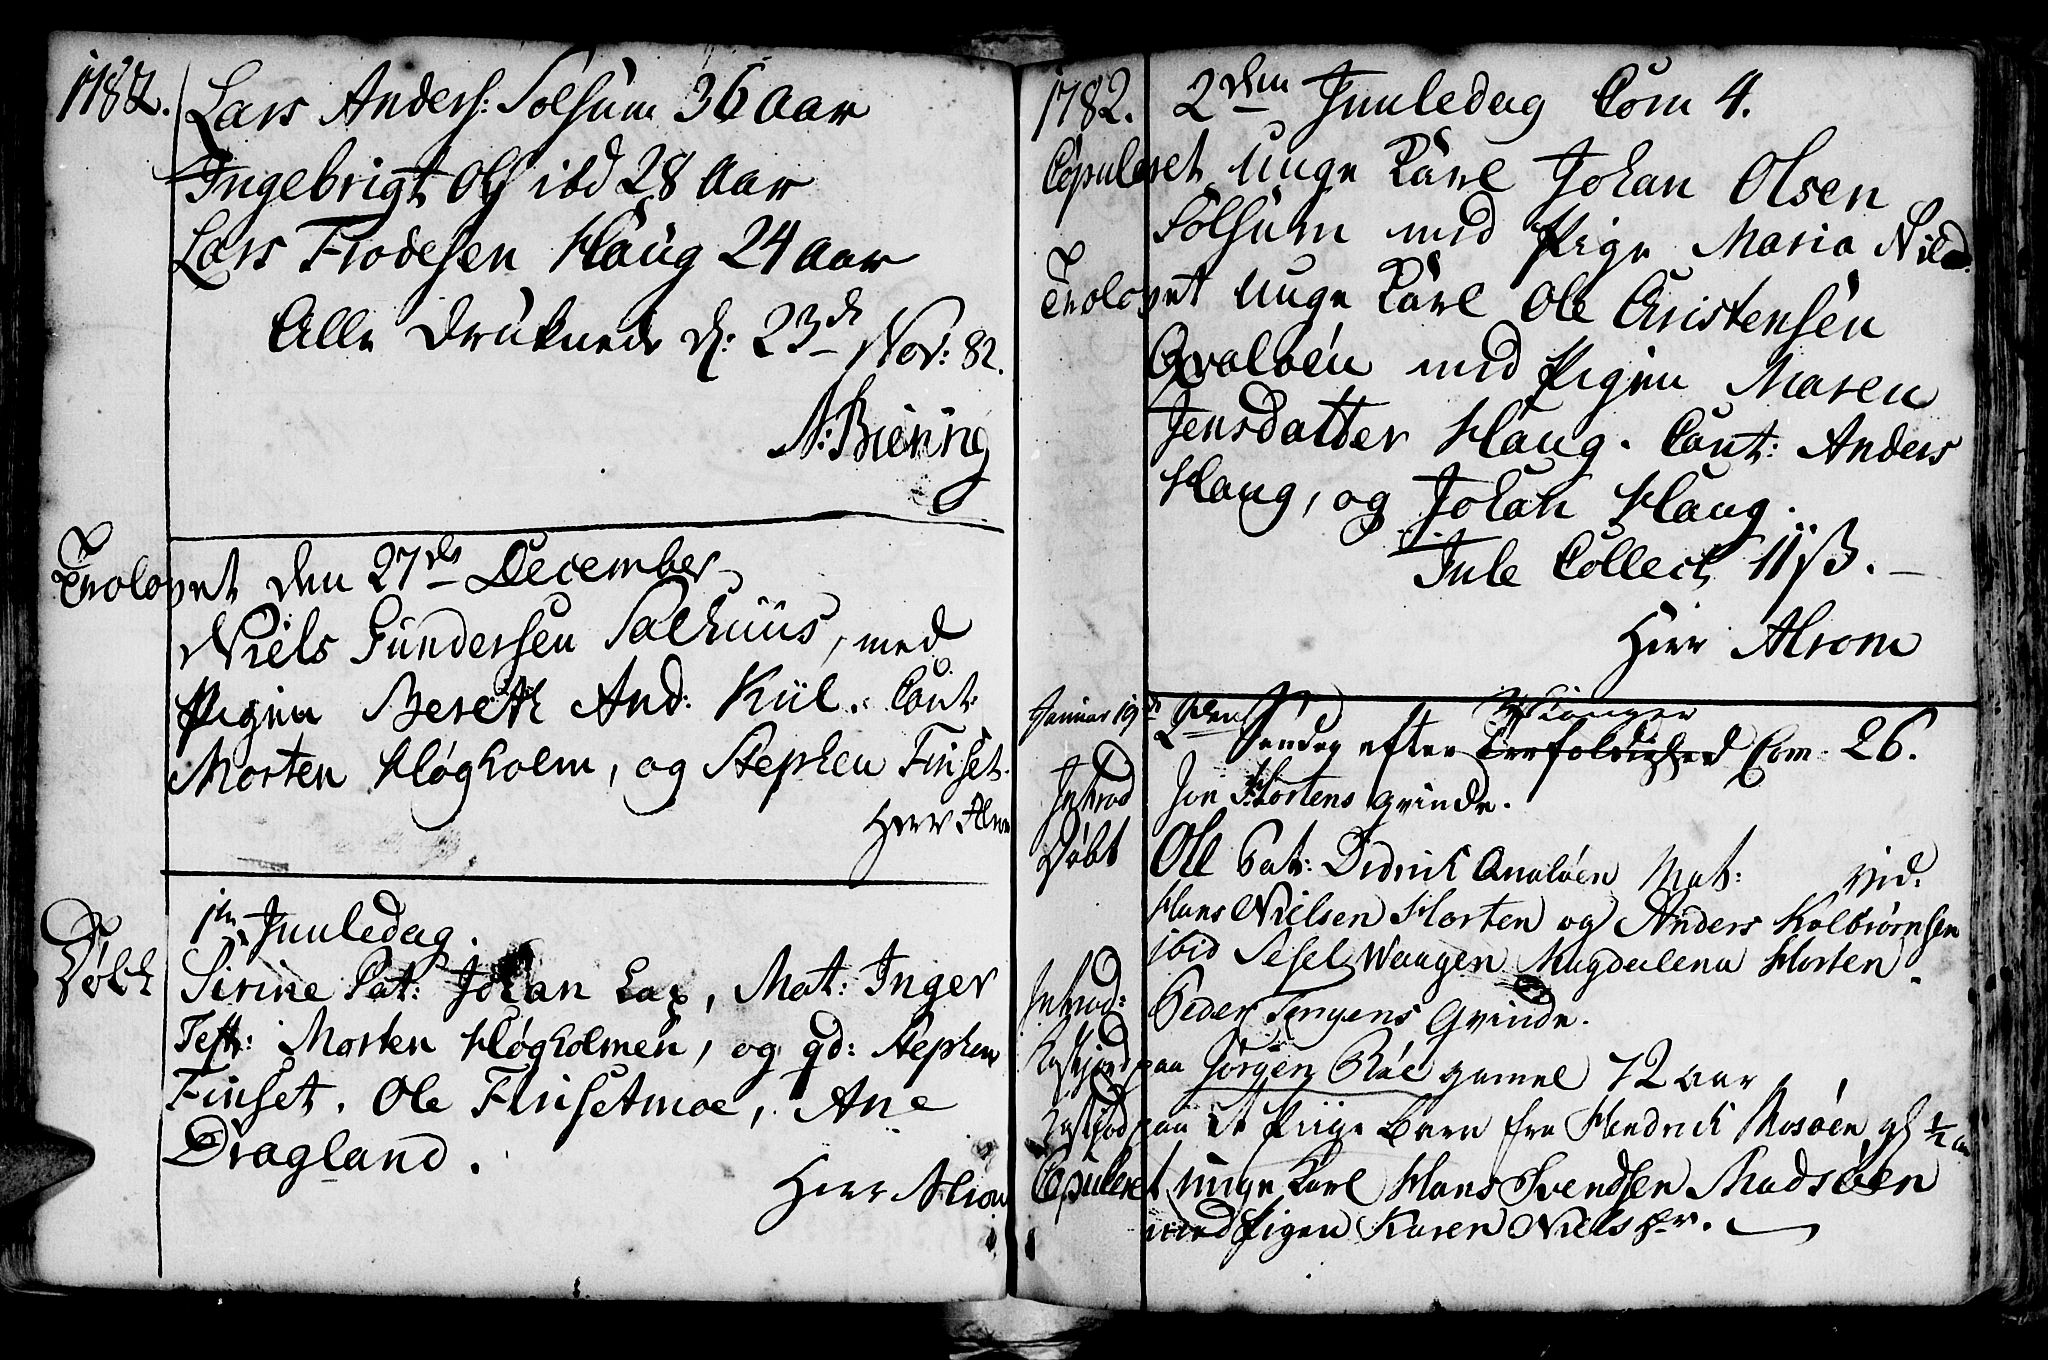 1782.
Lars Anders: Solsum 36 Aar
Ingebrigt Ols ibd 28 Aar
Lars Frodesen Haug 24 Aar
Alle Druknede d: 23de Nov: 82.
N: Biering
Trolovet den 27de December
Niels Gundersen Salhuus, med
Pigen Bereth And: Kiil. Cont:
Morten Høgholm, og Stephen Finset.
Herr Alrom
1te Juuledag.
Døbt Sirine Pat: Johan Lax, Mat: Inger
Test: Morten Høgholmen, og qd: Stephen
Finset. Ole Finsetmoe, Ane
Dragland.
Herr Alrom
1782. 2den Juuledag Com 4.
Copuleret Unge Karl Johan Olsen
Solsum med Pige Maria Nilsd:
Trolovet Unge Karl Ole Christensen
Qvaløen med Pigen Maren
Jensdatter Haug. Cont: Anders
Haug, og Johan Haug.
Jule Collect 11 ß.
Herr Alrom
Januar 19de 2den Søndag efter Trefoldighed Com: 26.
Introd Jon Hortens qvinde.
Døbt Ole Pat: Didrik Qvaløen Mat: vid.
Hans Nielsen Horten og Anders Kolbiørnsen
ibid Sesel Waagen Magdalena Horten
Introd: Peder Qvinde.
Kastjord paa Jørgen gamel 72 aar
Kastjod paa et Piige Barn fra Hendrick Mosøen gl 1/2 a
Copuleret unge Karl Hans Svendsen Madsøen
med Pigen Karen Niels